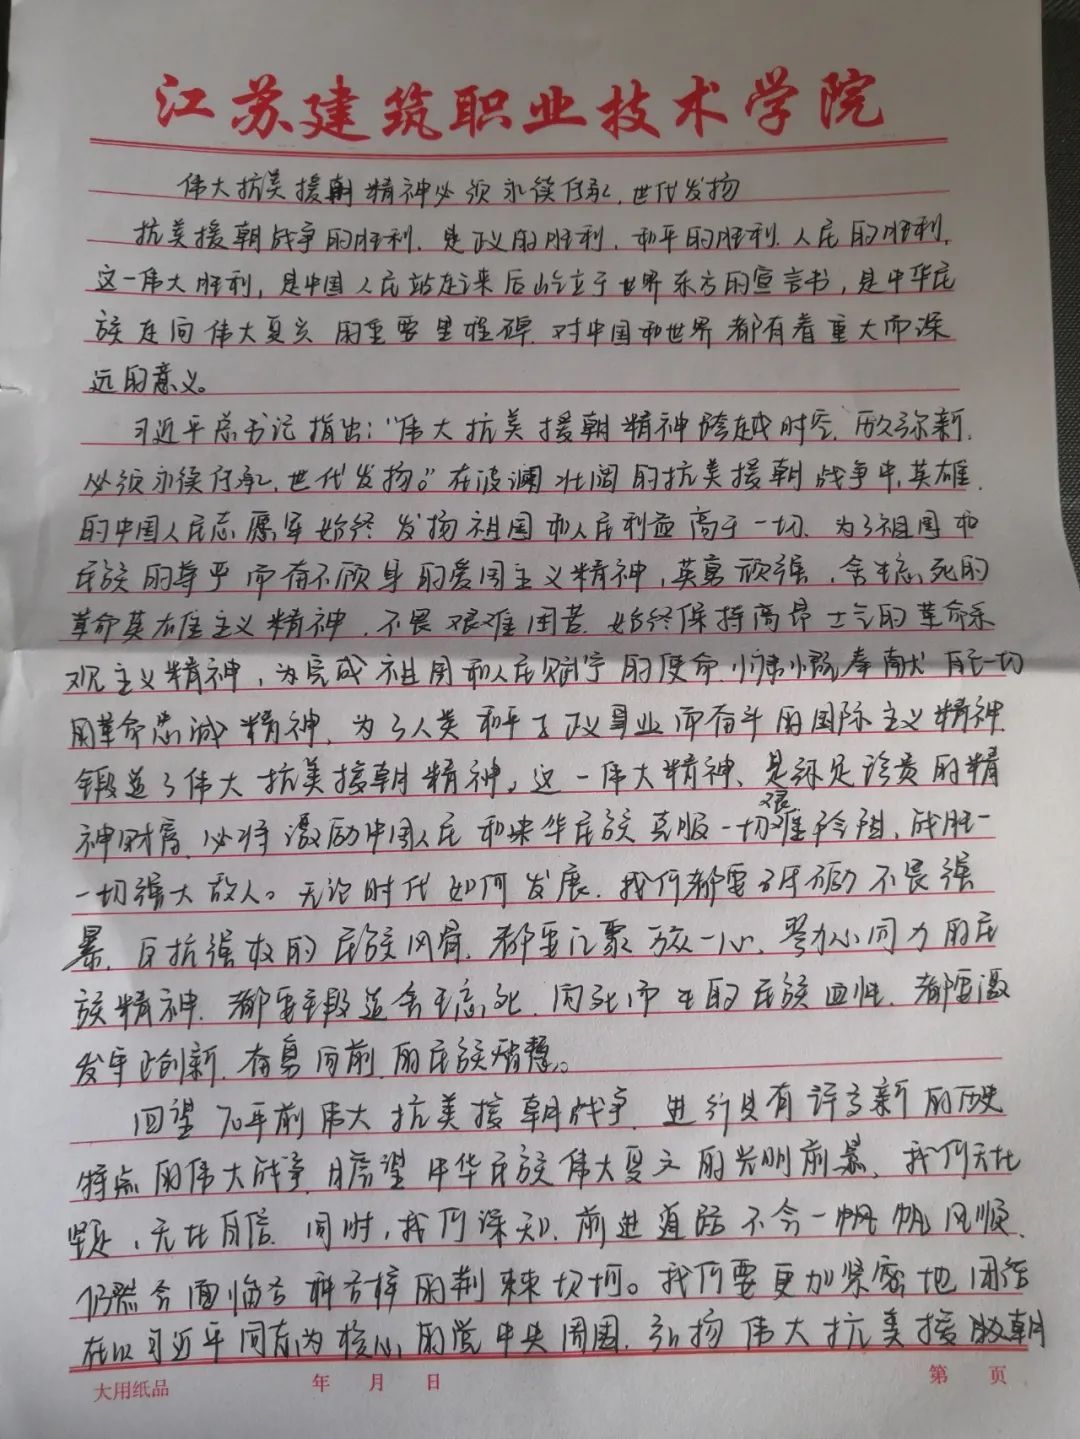 江苏建筑职业技术学院
伟大抗美援朝精神必须永续传承,世代发扬
抗美援朝战争的胜利,是正义的胜利,和平的胜利,人民的胜利,
这一伟大胜利,是中国人民站起来后屹立于世界东方的宣言书,是中华民
族走向伟大复兴的重要里程碑,对中国和世界都有着重大而深
远的意义。
习近平总书记指出:“伟大抗美援朝精神跨越时空、历久弥新,
必须永续传承,世代发扬。”在波澜壮阔的抗美援朝战争中,英雄
的中国人民志愿军始终发扬祖国和人民利益高于一切、为了祖国和
民族的尊严而奋不顾身的爱国主义精神,英勇顽强、舍生忘死的
革命英雄主义精神,不畏艰难困苦、始终保持高昂士气的革命乐
观主义精神,为完成祖国和人民赋予的使命、慷慨奉献自己一切
的革命忠诚精神,为了人类和平与正义事业而奋斗的国际主义精神,
锻造了伟大抗美援朝精神。这一伟大精神,是弥足珍贵的精
神财富,必将激励中国人民和中华民族克服一切艰难险阻、战胜一
一切强大敌人。无论时代如何发展,我们都要砥砺不畏强
暴、反抗强权的民族风骨,都要汇聚万众一心、勠力同心的民
族精神,都要锻造舍生忘死、向死而生的民族血性,都要激
发守正创新、奋勇向前的民族智慧。
回望70年前伟大抗美援朝战争,进行具有许多新的历史
特点的伟大战争,瞻望中华民族伟大复兴的光明前景,我们无比
坚定、无比自信。同时,我们深知,前进道路不会一帆帆风顺,
仍然会面临各种各样的荆棘坎坷。我们要更加紧密地团结
在以习近平同志为核心的党中央周围,弘扬伟大抗美援朝
大用纸品 年 月 日 第 页